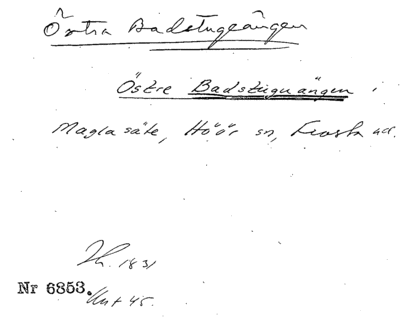 Östra Badstugeängen
Östre Badstüguängen i
Maglasäte, Höör sn, Frosta hd.
1831
Nr 6853.
45.